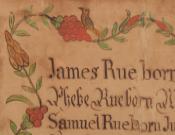 James Rue born
Phebe Rue born M
Samuel Rue born Ju